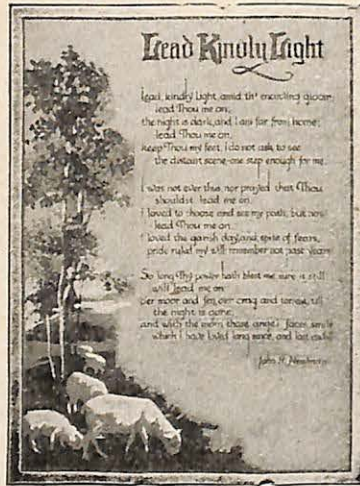 Lead Kindly Light
Lead, kindly Light, amid th' encircling gloom;
lead Thou me on;
the night is dark, and I am far from home;
lead Thou me on.
Keep Thou my feet, I do not ask to see
the distant scene—one step enough for me.
I was not ever thus, nor prayed that Thou
shouldst lead me on.
I loved to choose and see my path, but now
lead Thou me on.
I loved the garish day, and, spite of fears,
pride ruled my will: remember not past years
So long Thy power hath blest me, sure it still
will lead me on
o'er moor and fen, o'er crag and torrent, till
the night is gone;
and with the morn those angel faces smile
which I have loved long since, and lost awhile
John H. Newman